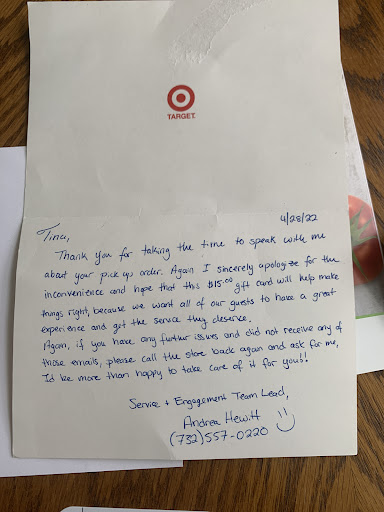 TARGET
4/28/22
Tina,
Thank you for taking the time to speak with me
about your pick up order. Again I sincerely apologize for the
inconvenience and hope that this $15.00 gift card will help make
things right, because we want all of our guests to have a great
experience and get the service they deserve.
Again, if you have any further issues and did not receive any of
those emails, please call the store back again and ask for me,
I'd be more than happy to take care of it for you!!
Service + Engagement Team Lead,
Andrea Hewitt
(732)557-0220